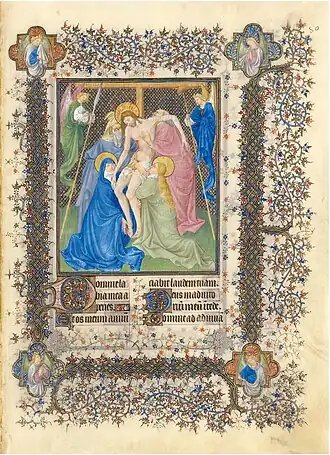 Domine la
bia mea a
peries
Et os meum annũ
ciabit laudem tuam.
Deus in adiuto
riũ meũ intẽde
Domine ad adiuuã